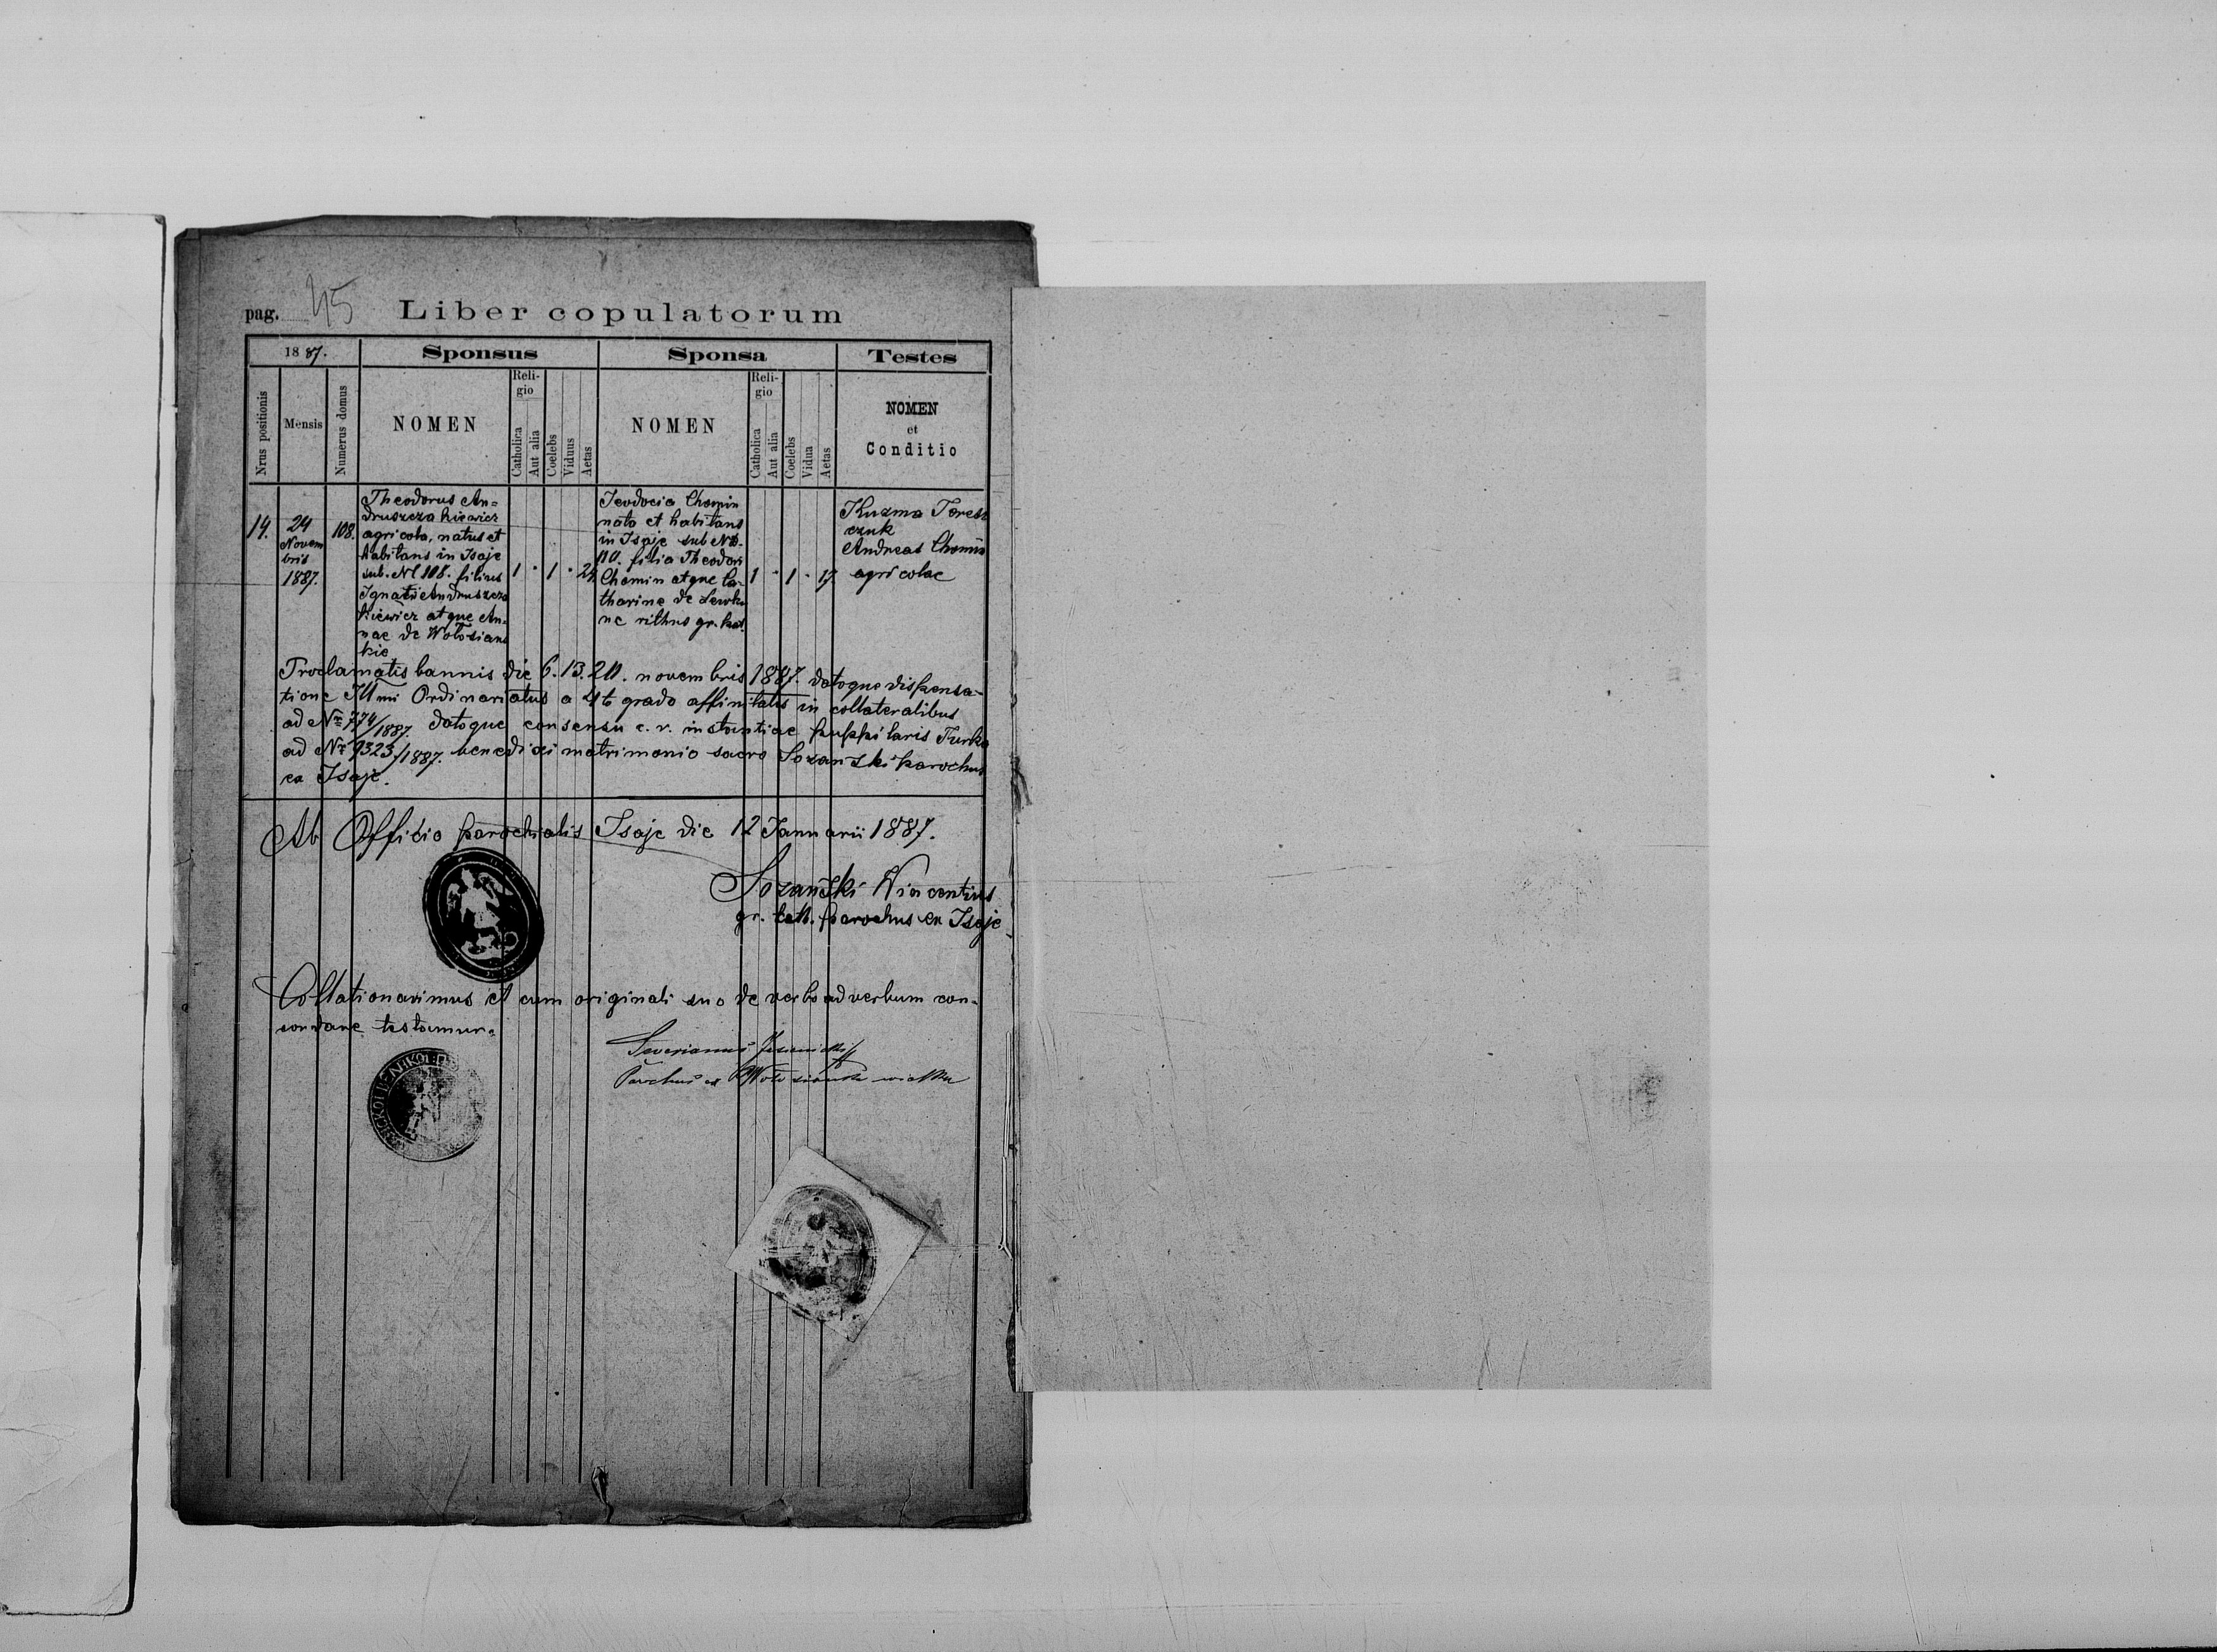 pag. 45 Liber copulatorum
1887. Sponsus Sponsa Testes
Nrus positionis
Mensis
Numerus domus
NOMEN
Religio
Catholica
Aut alia
Coelebs
Viduus
Aetas
NOMEN
Religio
Catholica
Aut alia
Coelebs
Vidua
Aetas
NOMEN
et
Conditio
14.
24
Novem
bris
1887.
108.
Theodorus An=
druszczakiewicz
agricola, natus et
habitans in Isaje
sub. N 108. filius
Ignatii Andruszcza
kiewicz atque An-
nae de Wołosians
kie
1 · 1 · 24
Jevdocia Chomin
nata et habitans
in Isaje sub No.
110. filia Theodori
Chomin atque Ca-
tharine de Lewku
ne rithus gr. kat.
1 · 1 · 17
Kuzma Teresz
czuk
Andreas Chomin
agricolae
Proclamatis bannis die 6. 13. 20. novembris 1887. datoque dispensa-
tione Illmi Ordinariatus a 4to grado affinitatis in collateralibus
ad Nr 774/1887. datoque consensu c. r. instantiae puppilaris Turka
ad Nr 9323/1887. benedixi matrimonio sacro Sozański parochus
ex Isaje.
Ab Officio parochialis Isaje die 12 Januarii 1887.
Sozański Wincentius
gr. cath. parochus ex Isaje
Collationavimus et cum originali suo de verbo ad verbum con-
cordare testamur.
Severianus
Parochus ex Wołosianka wielka